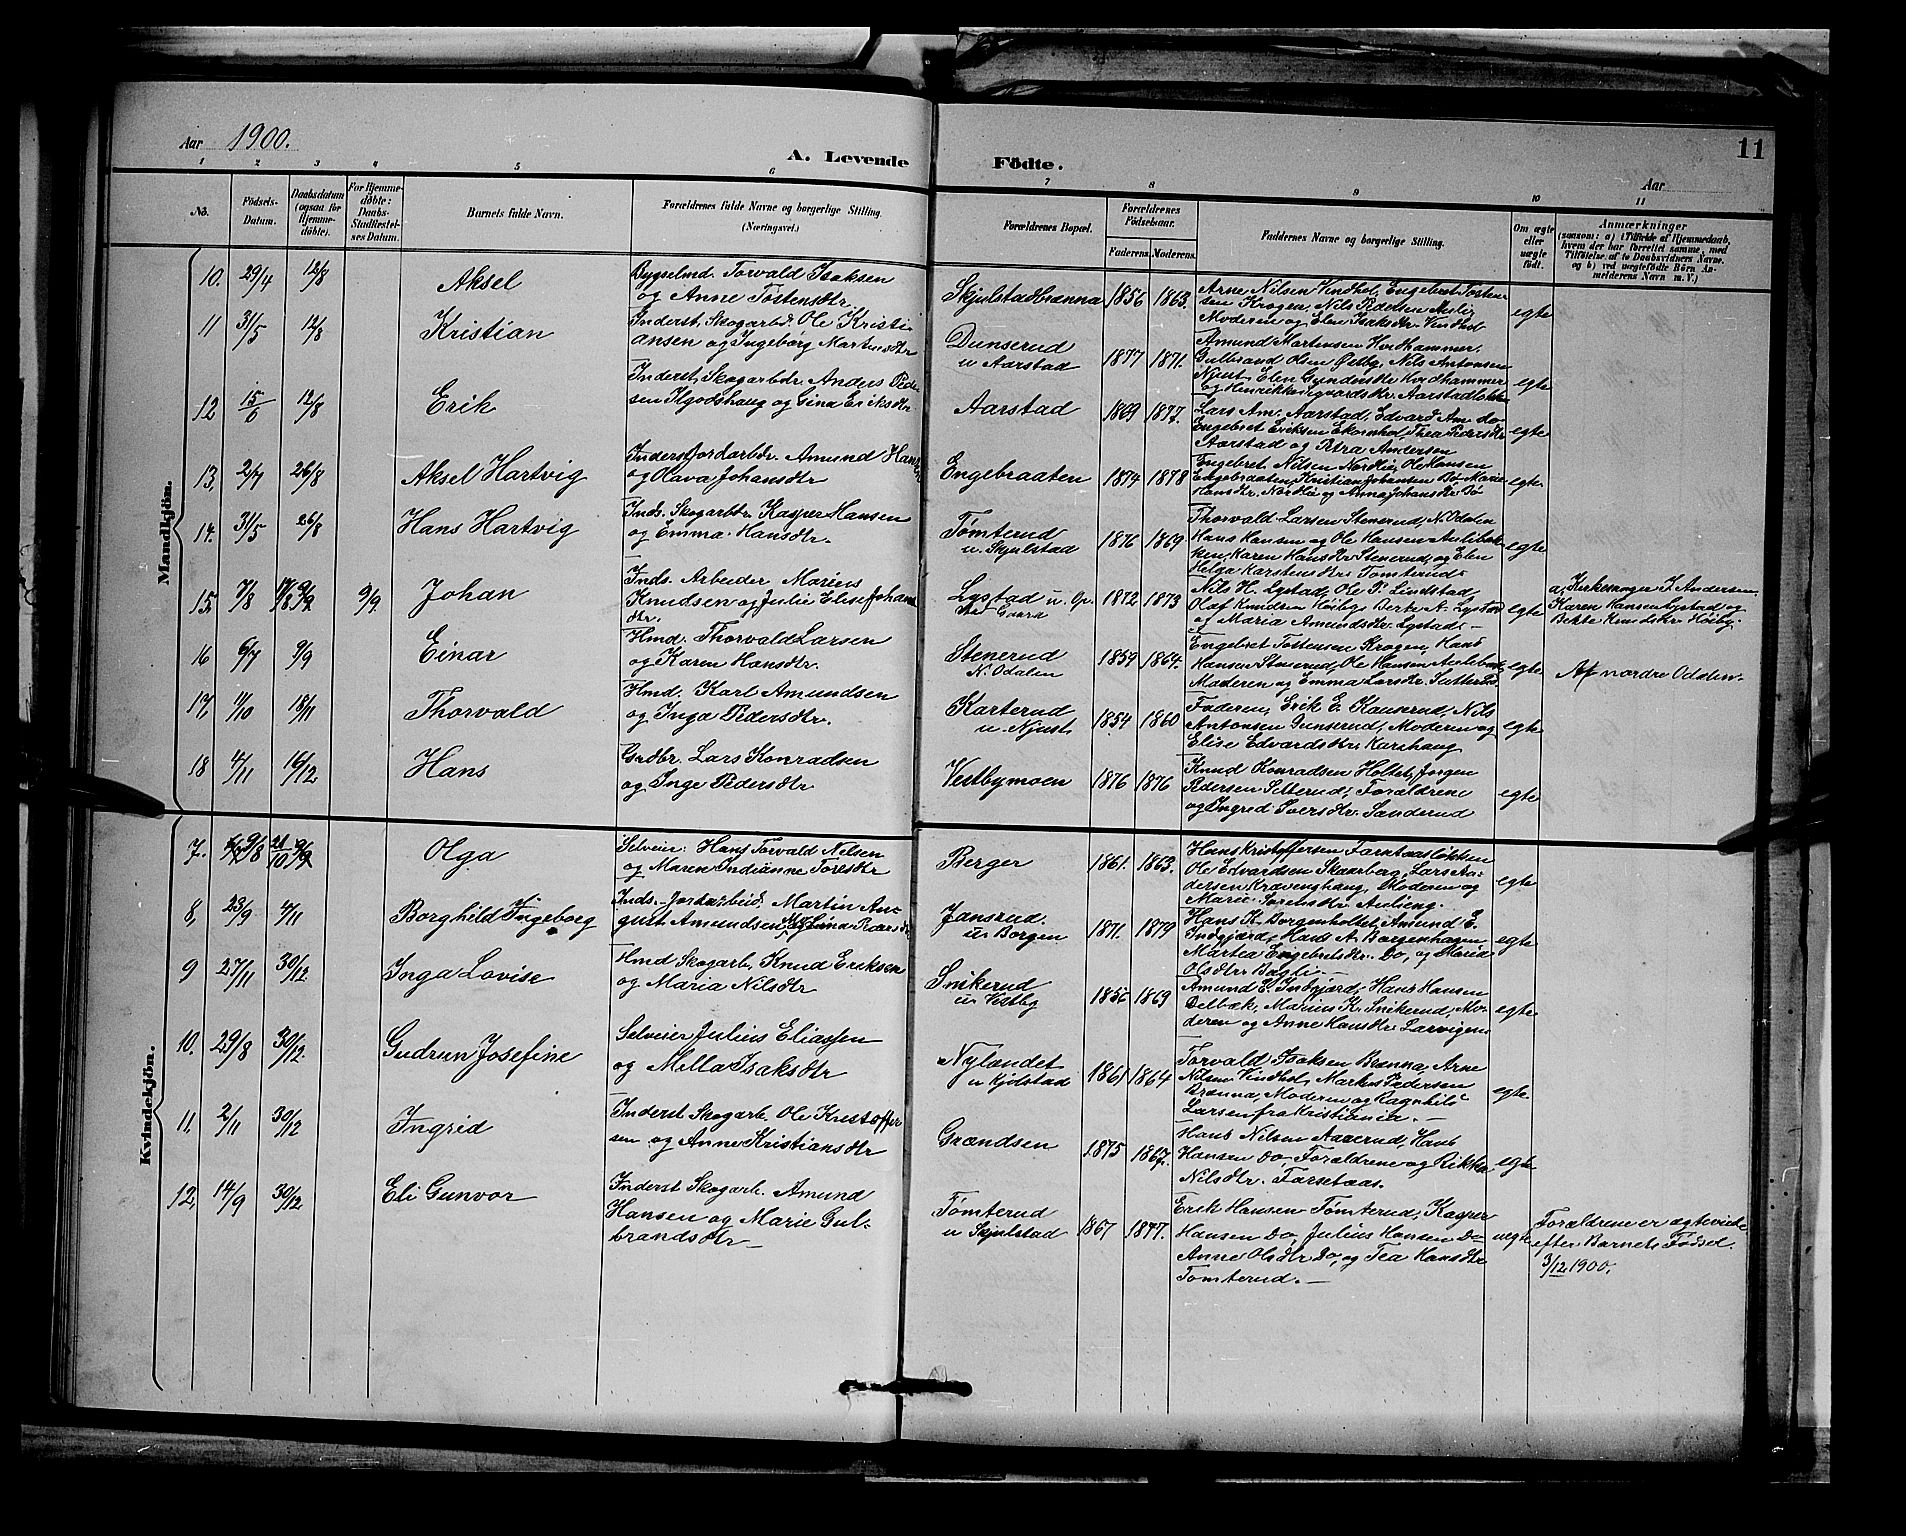 Aar 1900.
A. Levende Födte.
11
Aar
1 2 3 4 5 6 7 8 9 10 11
No.
Födsels-Datum.
Daabsdatum (ogsaa for Hjemme-döbte).
For Hjemme-döbte: Daabs-Stadfestelses Datum.
Barnets fulde Navn.
Forældrenes fulde Navne og borgerlige Stilling. (Næringsvei.)
Forældrenes Bopæl.
Forældrenes Födselsaar.
Faderens. Moderens.
Faddernes Navne og borgerlige Stilling.
Om ægte eller uægte födt.
Anmærkninger (saasom: a) i Tilfælde af Hjemmedaab, hvem der har forrettet samme, med Tilföielse af to Daabsvidners Navne. og b) ved uægtefödte Börn Anmelderens Navn m. V.)
Mandkjön.
10. 29/4 12/8 Aksel
Bygselmd. Torvald Isaksen
og Anne Tostensdtr.
Skjulstadbrænna 1856 1863.
Arne Nilsen Vindhol, Engebret Tosten-
sen Krogen, Nils Pedersen Aulig
Moderen og Elen Isaksdtr. Vindhol
egte
11 31/5 12/8 Kristian
Inderst, Skogarbd. Ole Kristi-
ansen og Ingeborg Martinsdtr
Dunserud
u Aarstad
1877 1871.
Amund Martensen Hvidhammer.
Gulbrand Olsen Østby, Nils Antonsen
Njust, Elen Gundersdtr Hvidhammer
og Henrikke Sigvardsdtr. Aarstadløkken
egte
12 15/6 12/8 Erik
Inderst, Skogarbdr. Anders Peder-
sen Ilgodshaug og Gina Eriksdtr
Aarstad 1869 1877.
Lars Am. Aarstad, Edvard Am. do
Engebret Eriksen Ekornhol, Thea Pedersdtr
Aarstad og Petra Andersen
egte
13, 2/7 26/8 Aksel Hartvig
Inderst jordarbdr. Amund Hansen
og Olava Johansdtr
Engebraaten 1874 1878
Engebret Nilsen Nordlie, Ole Hansen
Engebraaten, Kristian Johansen Bø, Marie
Hansdtr. Nordlie og Anna Johansdtr Bø
egte
14. 31/5 26/8 Hans Hartvig
Inds. Skogarbdr Kasper Hansen
og Emma Hansdtr.
Tømterud
u. Skjulstad
1876 1869
Thorvald Larsen Stenerud, N. Odalen
Hans Hansen og Ole Hansen Aulibak-
ken, Karen Hansdtr Stenerud, og Elen
Helga Karstensdtr Tømterud
egte
15, 7/8 9/9 9/9. Johan
Inds. Arbeider Marius
Knudsen og Julie Elise Johans
dtr.
Lystad u. Gr.
1872 1873
Nils H. Lystad, Ole P. Lindstad,
Olaf Knudsen Høiby, Berte A. Lystad
og Maria Amundsdtr Lystad
egte
a, Kirkesanger I. Andersen
Karen Hansen Lystad og
Berte Knudsdtr Høiby.
16 6/7 9/9 Einar
Hmd. Thorvald Larsen
og Karen Hansdtr.
Stenerud
N. Odalen
1859 1864.
Engebret Tostensen Krogen, Hans
Hansen Stenerud, Ole Hansen Aulibak
Moderen og Emma Larsdtr.
egte
Af nordre Odalen.
17, 11/10 18/11 Thorvald
Hmd. Karl Amundsen
og Inga Pedersdtr.
Karterud
u. Njust.
1854 1860
Faderen, Erik E. Kauserud, Nils
Antonsen Gunserud, Moderen og
Elise Edvardsdtr Karihaug
egte
18 4/11 16/12. Hans
Grdbr. Lars Konradsen
og Inge Pedersdtr
Vestbymoen 1876 1876
Knud Konradsen Holtet, Jørgen
Pedersen Setterud, Forældrene
og Ingrid Iversdtr Sanderud
egte
Kvindekjön.
7. 9/8 21/10 Olga
Selveier Hans Torvald Nilsen
og Maren Indianne Toresdtr
Berger 1861. 1863.
Hans Kristoffersen Farstaasløkken
Ole Edvardsen Skaarberg, Lars An-
dersen Kravenghaug, Moderen og
Marie Torensdtr Aulieng.
egte
8, 23/9 4/11 Borghild Ingeborg
Inds. Jordarbeid. Martin Au-
gust Amundsen og Lina Roarsdtr
Jansrud.
u. Borgen
1871. 1879
Hans K. Borgenholtet, Amund E.
Indgjærd, Hans A. Borgenhagen
Martea Engebretsdtr. Do, og Maria
Olsdtr Bagli.
egte
9 27/11 30/12 Inga Lovise
Hmd Skogarb, Knud Eriksen
og Maria Nilsdtr
Snikerud
u. Vestby
1856 1869
Amund E. Indgjærd, Hans Hansen
Delbæk, Marius K. Snikerud, Mo-
deren og Anne Hansdtr Larvigen
egte
10. 29/8 30/12. Gudrun Josefine
Selveier Julius Eliassen
og Milla Isaksdtr
Nylandet
u Kjölstad
1861 1864
Torvald Isaksen Brænna, Arne
Nilsen Vindhol, Markus Pedersen
Brænna, Moderen og Ragnhild
Larsen fra Kristiania. —
egte
11, 2/11 30/12 Ingrid
Inderst Skogarb. Ole Kristoffer
sen og Anne Kristiansdtr
Grændsen 1875 1867.
Hans Nilsen Aaserud, Hans
Hansen do, Forældrene og Rikka
Nilsdtr. Farsetaas.
egte
12, 14/9 30/12. Eli Gunvor
Inderst Skogarb. Amund
Hansen og Marie Gul-
brandsdtr —
Tømterud
u Skjulstad
1867 1847.
Erik Hansen Tømterud, Kasper
Hansen Do, Julius Hansen Do
Anne Olsdtr Do, og Tea Hansdtr
Tømterud. —
uegte
Forældrene er ægteviede
efter Barnets Fødsel.
3/12 1900.